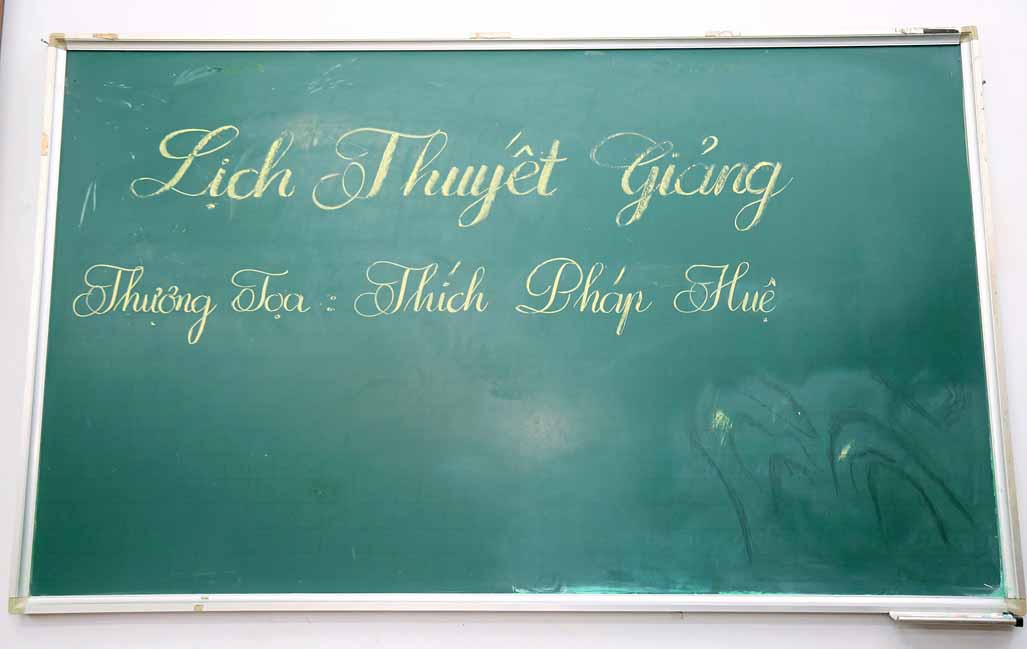 Lịch Thuyết Giảng
Thượng Tọa : Thích Pháp Huệ